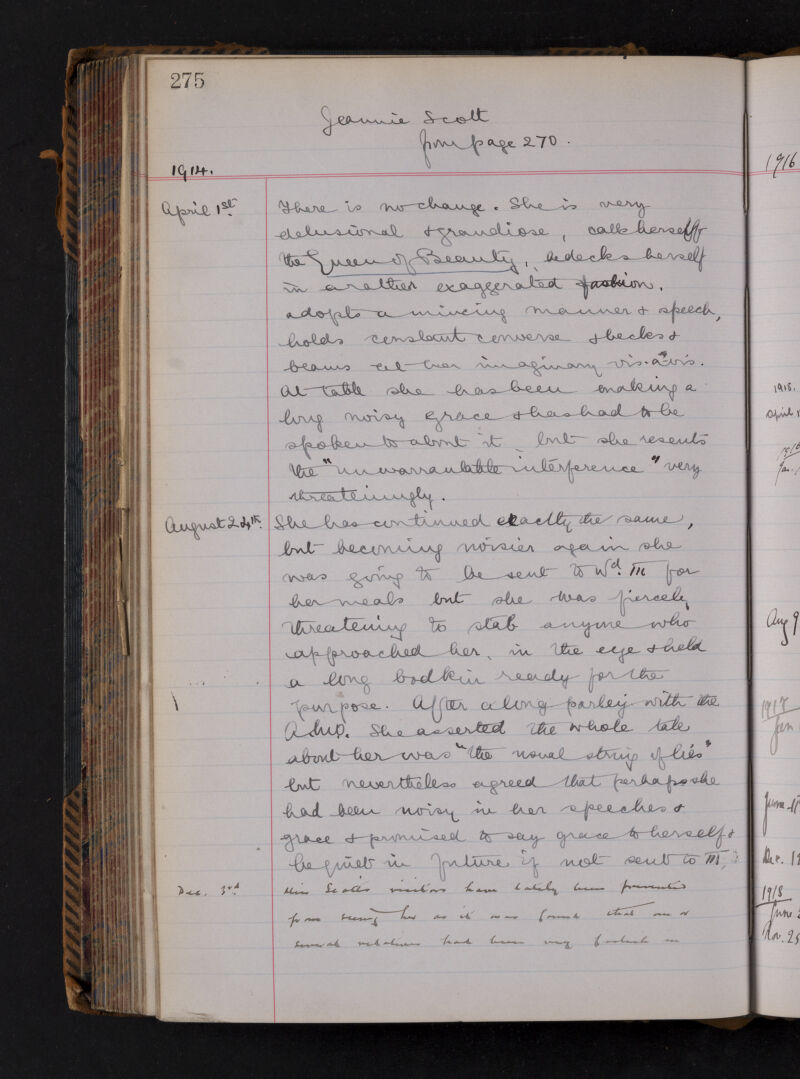 275
Jeannie Scott
from page 270.
1914.
April 1st There is no change. She is very
delusional & grandiose, calls herself
the Queen of Beauty, bedecks herself
in a rather exaggerated fashion,
adopts a mincing manner & speech,
holds constant converse & becks &
beams at her imaginary vis-à-vis.
At table she has been making a
long noisy grace & has had to be
spoken to about it but she resents
the "unwarrantable interference" very
threateningly.
August 24th. She has continued exactly the same,
but becoming noisier again she
was going to be sent to Wd. III for
her meals but she was fiercely
threatening to stab anyone who
approached her, in the eye & held
a long bodkin ready for the
purpose. After a long parley with the
A.M.O. She asserted the whole tale
about her was "the usual string of lies"
but nevertheless agreed that perhaps she
had been noisy in her speeches &
grace & promised to say grace to herself &
be quiet in future if not sent to III.
Dec. 3rd Miss Scott's visitors have lately been prevented
from seeing her as it was found that one or
several relatives had been very in
1916
1915.
April 1
1916
Jan.
Aug 9
1917
Jan
June 11
Dec. 1
1918
June 2
Nov. 25